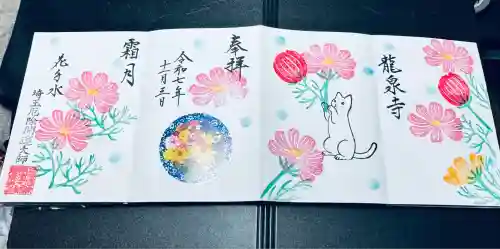 奉拝
龍泉寺
令和七年
十一月三日
霜月
花手水
埼玉厄除開運大師